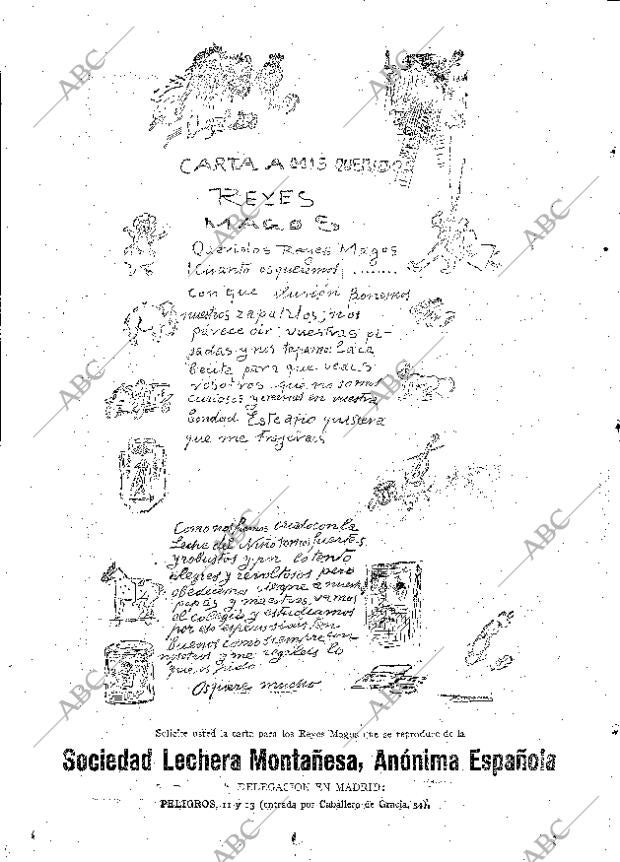 CARTA A MIS QUERIDOS
REYES
MAGOS
Queridos Reyes Magos
Cuanto os queremos, ........
con que ilusión ponemos
nuestros zapatitos; nos
parece oir vuestras pi-
sadas y nos tapamos la ca
becita para que veais
vosotros que no somos
curiosos y creemos en vuestra
bondad Este año quisiera
que me trajerais
Como nos hemos criado con la
Leche del Niño somos fuertes
y robustos y por lo tanto
alegres y revoltosos pero
obedecemos siempre a nuestros
papás y maestros, vamos
al colegio y estudiamos
por eso espero seais tan
buenos como siempre con
nosotros y me regaleis lo
que os pido
Os quiere mucho
Solicite usted la carta para los Reyes Magos que se reproduce de la
Sociedad Lechera Montañesa, Anónima Española
DELEGACION EN MADRID:
PELIGROS, 11 y 13 (entrada por Caballero de Gracia, 54).